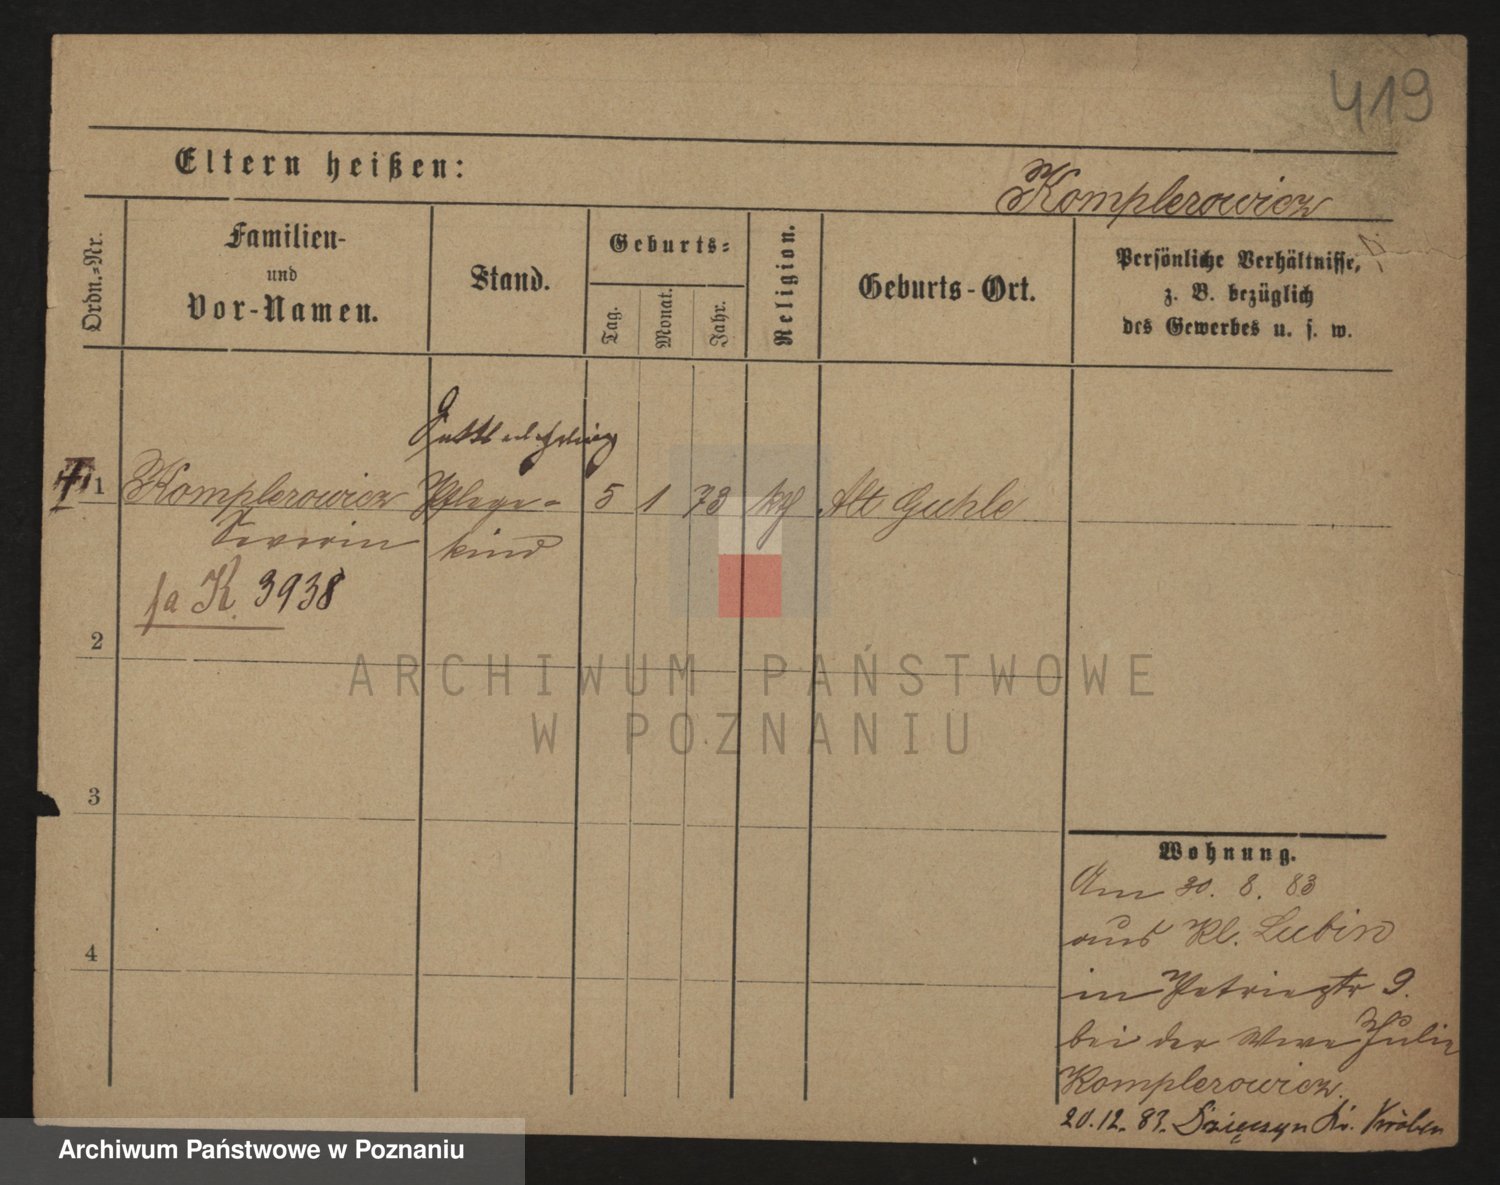 419
Eltern heißen:
Komplerowicz
Ordn.-Nr.
Familien-
und
Vor-Namen.
Stand.
Geburts-
Tag.
Monat.
Jahr.
Religion.
Geburts-Ort.
Persönliche Verhältnisse,
z. B. bezüglich
des Gewerbes u. s. w.
1
Komplerowicz Pflege- 5 1 73 kth Alt Guhle
Severin kind
fa K. 3938
2
ARCHIWUM PAŃSTWOWE
W POZNANIU
3
Wohnung.
Am 30. 8. 83
aus Kl. Lubin
in Petristr 9.
bei der Wwe Julie
Komplerowicz.
20.12. 87. Kr. Kröben
4
Archiwum Państwowe w Poznaniu